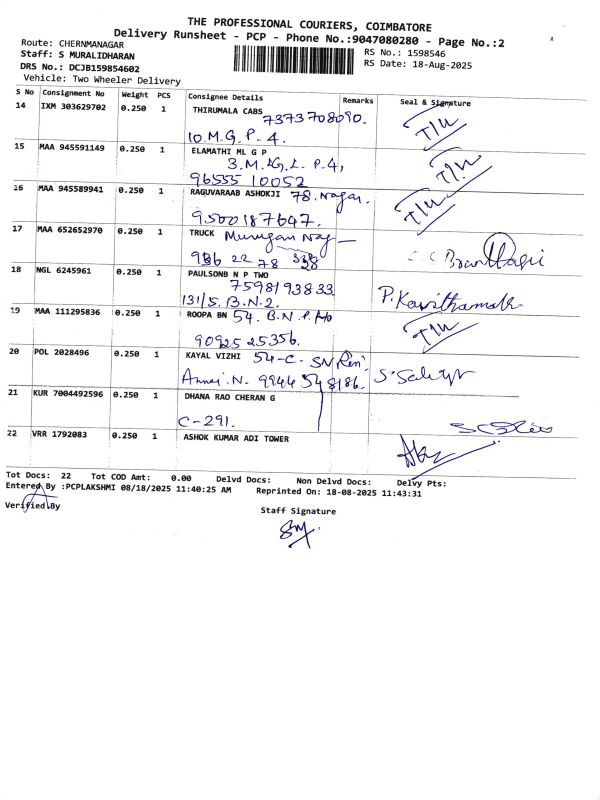 THE PROFESSIONAL COURIERS, COIMBATORE
Delivery Runsheet - PCP - Phone No.:9047080280 - Page No.:2
Route: CHERNMANAGAR
RS No.: 1598546
Staff: S MURALIDHARAN
RS Date: 18-Aug-2025
DRS No.: DCJB159854602
Vehicle: Two Wheeler Delivery
S No Consignment No Weight PCS Consignee Details Remarks Seal & Signature
14 IXM 303629702 0.250 1 THIRUMALA CABS
7373708090.
10.M.G.P-4.
T/U
15 MAA 945591149 0.250 1 ELAMATHI ML G P
3.M.G.L. P-4,
96555 10052
T/U
16 MAA 945589941 0.250 1 RAGUVARAAB ASHOKJI 78. Nagar.
9500187647.
T/U
17 MAA 652652970 0.250 1 TRUCK Murugan Nag
18 NGL 6245961 0.250 1 PAULSONB N P TWO
7598193833
131/5. B.N.2.
P. Kavithamala
19 MAA 111295836 0.250 1 ROOPA BN 54. B.N.P.
90925 25356.
T/U
20 POL 2028496 0.250 1 KAYAL VIZHI 54-C.
Annai.N. 9944 548186.
21 KUR 7004492596 0.250 1 DHANA RAO CHERAN G
C-291.
22 VRR 1792083 0.250 1 ASHOK KUMAR ADI TOWER
Tot Docs: 22 Tot COD Amt: 0.00 Delvd Docs: Non Delvd Docs: Delvy Pts:
Entered By :PCPLAKSHMI 08/18/2025 11:40:25 AM Reprinted On: 18-08-2025 11:43:31
Verified By
Staff Signature